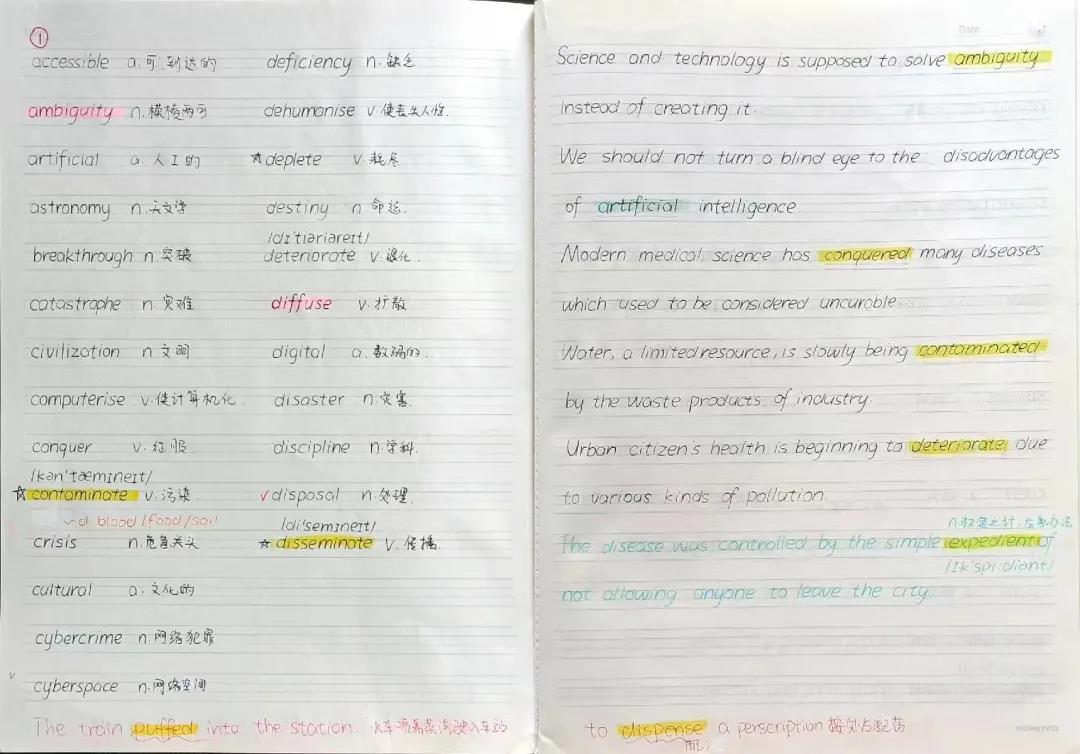 ①
accessible a. 可到达的
ambiguity n. 模棱两可
artificial a. 人工的
astronomy n. 天文学
breakthrough n. 突破
catastrophe n. 灾难
civilization n. 文明
computerise v. 使计算机化
conquer v. 征服
/kən'tæmɪneɪt/
☆contaminate v. 污染
~d blood/food/soil
crisis n. 危急关头
cultural a. 文化的
cybercrime n. 网络犯罪
cyberspace n. 网络空间
deficiency n. 缺乏
dehumanise v. 使丧失人性.
★deplete v. 耗尽
destiny n 命运.
/dɪ'tɪəriəreɪt/
deteriorate v. 退化.
diffuse v. 扩散
digital a. 数码的.
disaster n. 灾害.
discipline n. 学科.
✓disposal n. 处理.
/di'semɪneɪt/
☆disseminate v. 传播.
The train puffed into the station. 火车喷着蒸汽驶入车站
Date
Science and technology is supposed to solve ambiguity
instead of creating it.
We should not turn a blind eye to the disadvantages
of artificial intelligence
Modern medical science has conquered many diseases
which used to be considered uncurable.
Water, a limited resource, is slowly being contaminated
by the waste products of industry.
Urban citizen's health is beginning to deteriorate due
to various kinds of pollution.
n. 权宜之计, 应急办法
The disease was controlled by the simple expedient of
/ɪk'spi:diənt/
not allowing anyone to leave the city.
to dispense a perscription 按处方配药